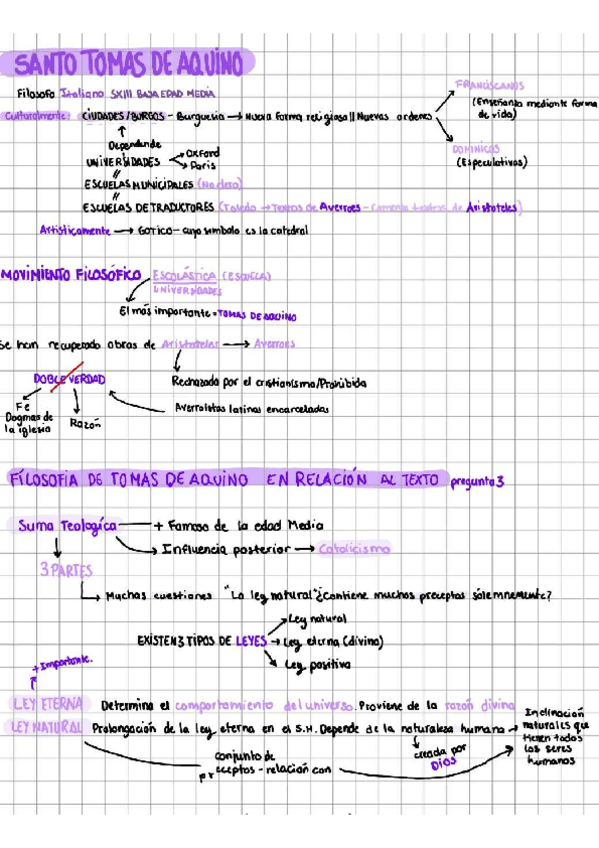 SANTO TOMAS DE AQUINO
Filosofo Italiano SXIII BAJA EDAD MEDIA
Culturalmente: CIUDADES/BURGOS - Burguesia → Nueva forma religiosa || Nuevas ordenes
FRANCISCANOS
(Enseñanza mediante forma de vida)
DOMINICOS
(Especulativos)
Depende de
UNIVERSIDADES → Oxford
→ Paris
ESCUELAS MUNICIPALES (No clero)
ESCUELAS DE TRADUCTORES (Toledo → Textos de Averroes - Comenta textos de Aristoteles)
Artisticamente → GOTICO - cuyo simbolo es la catedral
MOVIMIENTO FILOSÓFICO ESCOLÁSTICA (ESCUELA)
UNIVERSIDADES
El más importante = TOMAS DE AQUINO
Se han recuperado obras de Aristoteles → Averroes
DOBLE VERDAD
Rechazada por el cristianismo/Prohibida
Fe
Dogmas de
la iglesia
Razón
Averroistas latinas encarceladas
FILOSOFIA DE TOMAS DE AQUINO EN RELACIÓN AL TEXTO pregunta 3
Suma Teologica + Famoso de la edad Media
→ Influencia posterior → Catolicismo
3 PARTES
Muchas cuestiones "La ley natural" ¿Contiene muchos preceptos sólemnemente?
→ Ley natural
EXISTEN 3 TIPOS DE LEYES → Ley eterna (divina)
→ Ley positiva
+ Importante.
LEY ETERNA Determina el comportamiento del universo. Proviene de la razón divina
LEY NATURAL Prolongación de la ley eterna en el S.H. Depende de la naturaleza humana →
Inclinación
naturales que
tienen todos
los seres
humanos
creada por
DIOS
conjunto de
preceptos - relación con